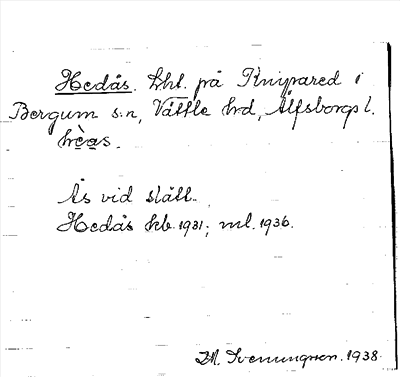 Hedås. lht. på Knipared i
Bergum s:n, Vättle hd, Älfsborgs l.
hèas.
Ås vid slätt.
Hedås kb. 1931; ml. 1936.
M. Svenungsson. 1938.